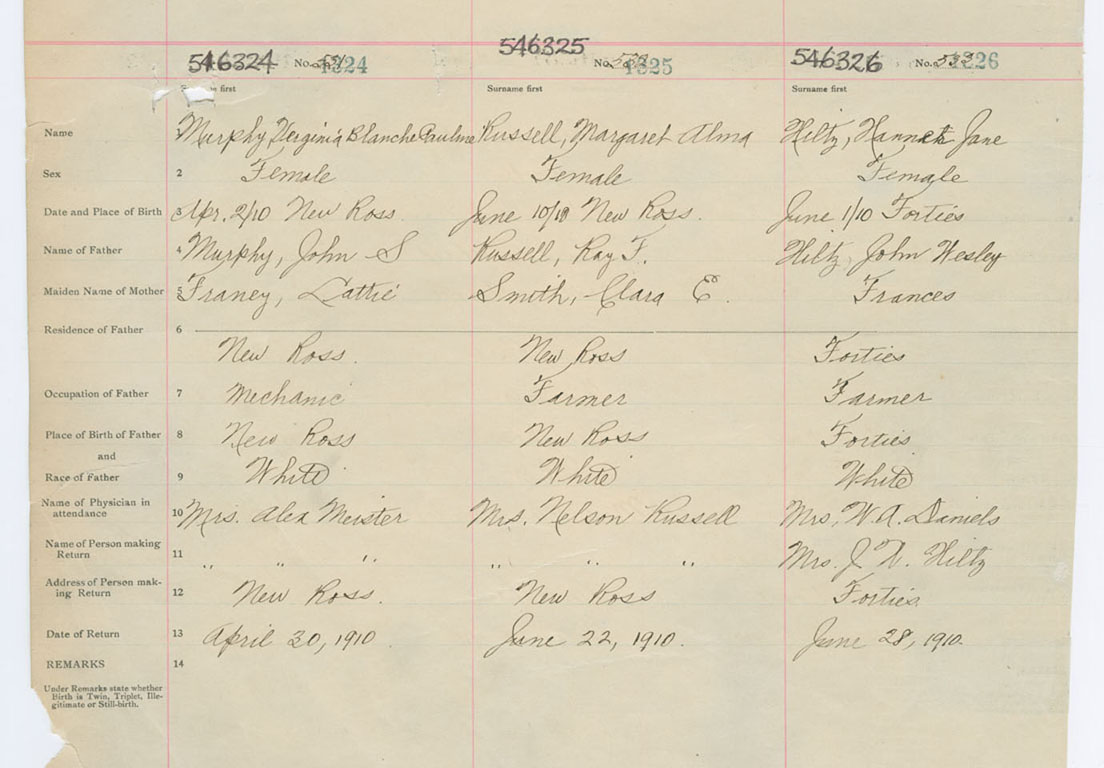 546324 No. 1324 546325 No. 1325 546326 No. 1326
Surname first Surname first Surname first
Name 1 Murphy, Verginia Blanche Pauline Russell, Margaret Alma Hiltz, Hannah Jane
Sex 2 Female Female Female
Date and Place of Birth 3 Apr. 2/10 New Ross. June 10/10 New Ross. June 1/10 Forties
Name of Father 4 Murphy, John S Russell, Ray F. Hiltz, John Wesley
Maiden Name of Mother 5 Franey, Lattie Smith, Clara E. Frances
Residence of Father 6
New Ross. New Ross Forties
Occupation of Father 7 Mechanic Farmer Farmer
Place of Birth of Father 8 New Ross New Ross Forties
and
Race of Father 9 White White White
Name of Physician in
attendance 10 Mrs. Alex Meister Mrs. Nelson Russell Mrs. W. A. Daniels
Name of Person making
Return 11 " " " " " " Mrs. J. W. Hiltz
Address of Person mak-
ing Return 12 New Ross. New Ross Forties
Date of Return 13 April 30, 1910 June 22, 1910. June 28, 1910.
REMARKS 14
Under Remarks state whether
Birth is Twin, Triplet, Ille-
gitimate or Still-birth.